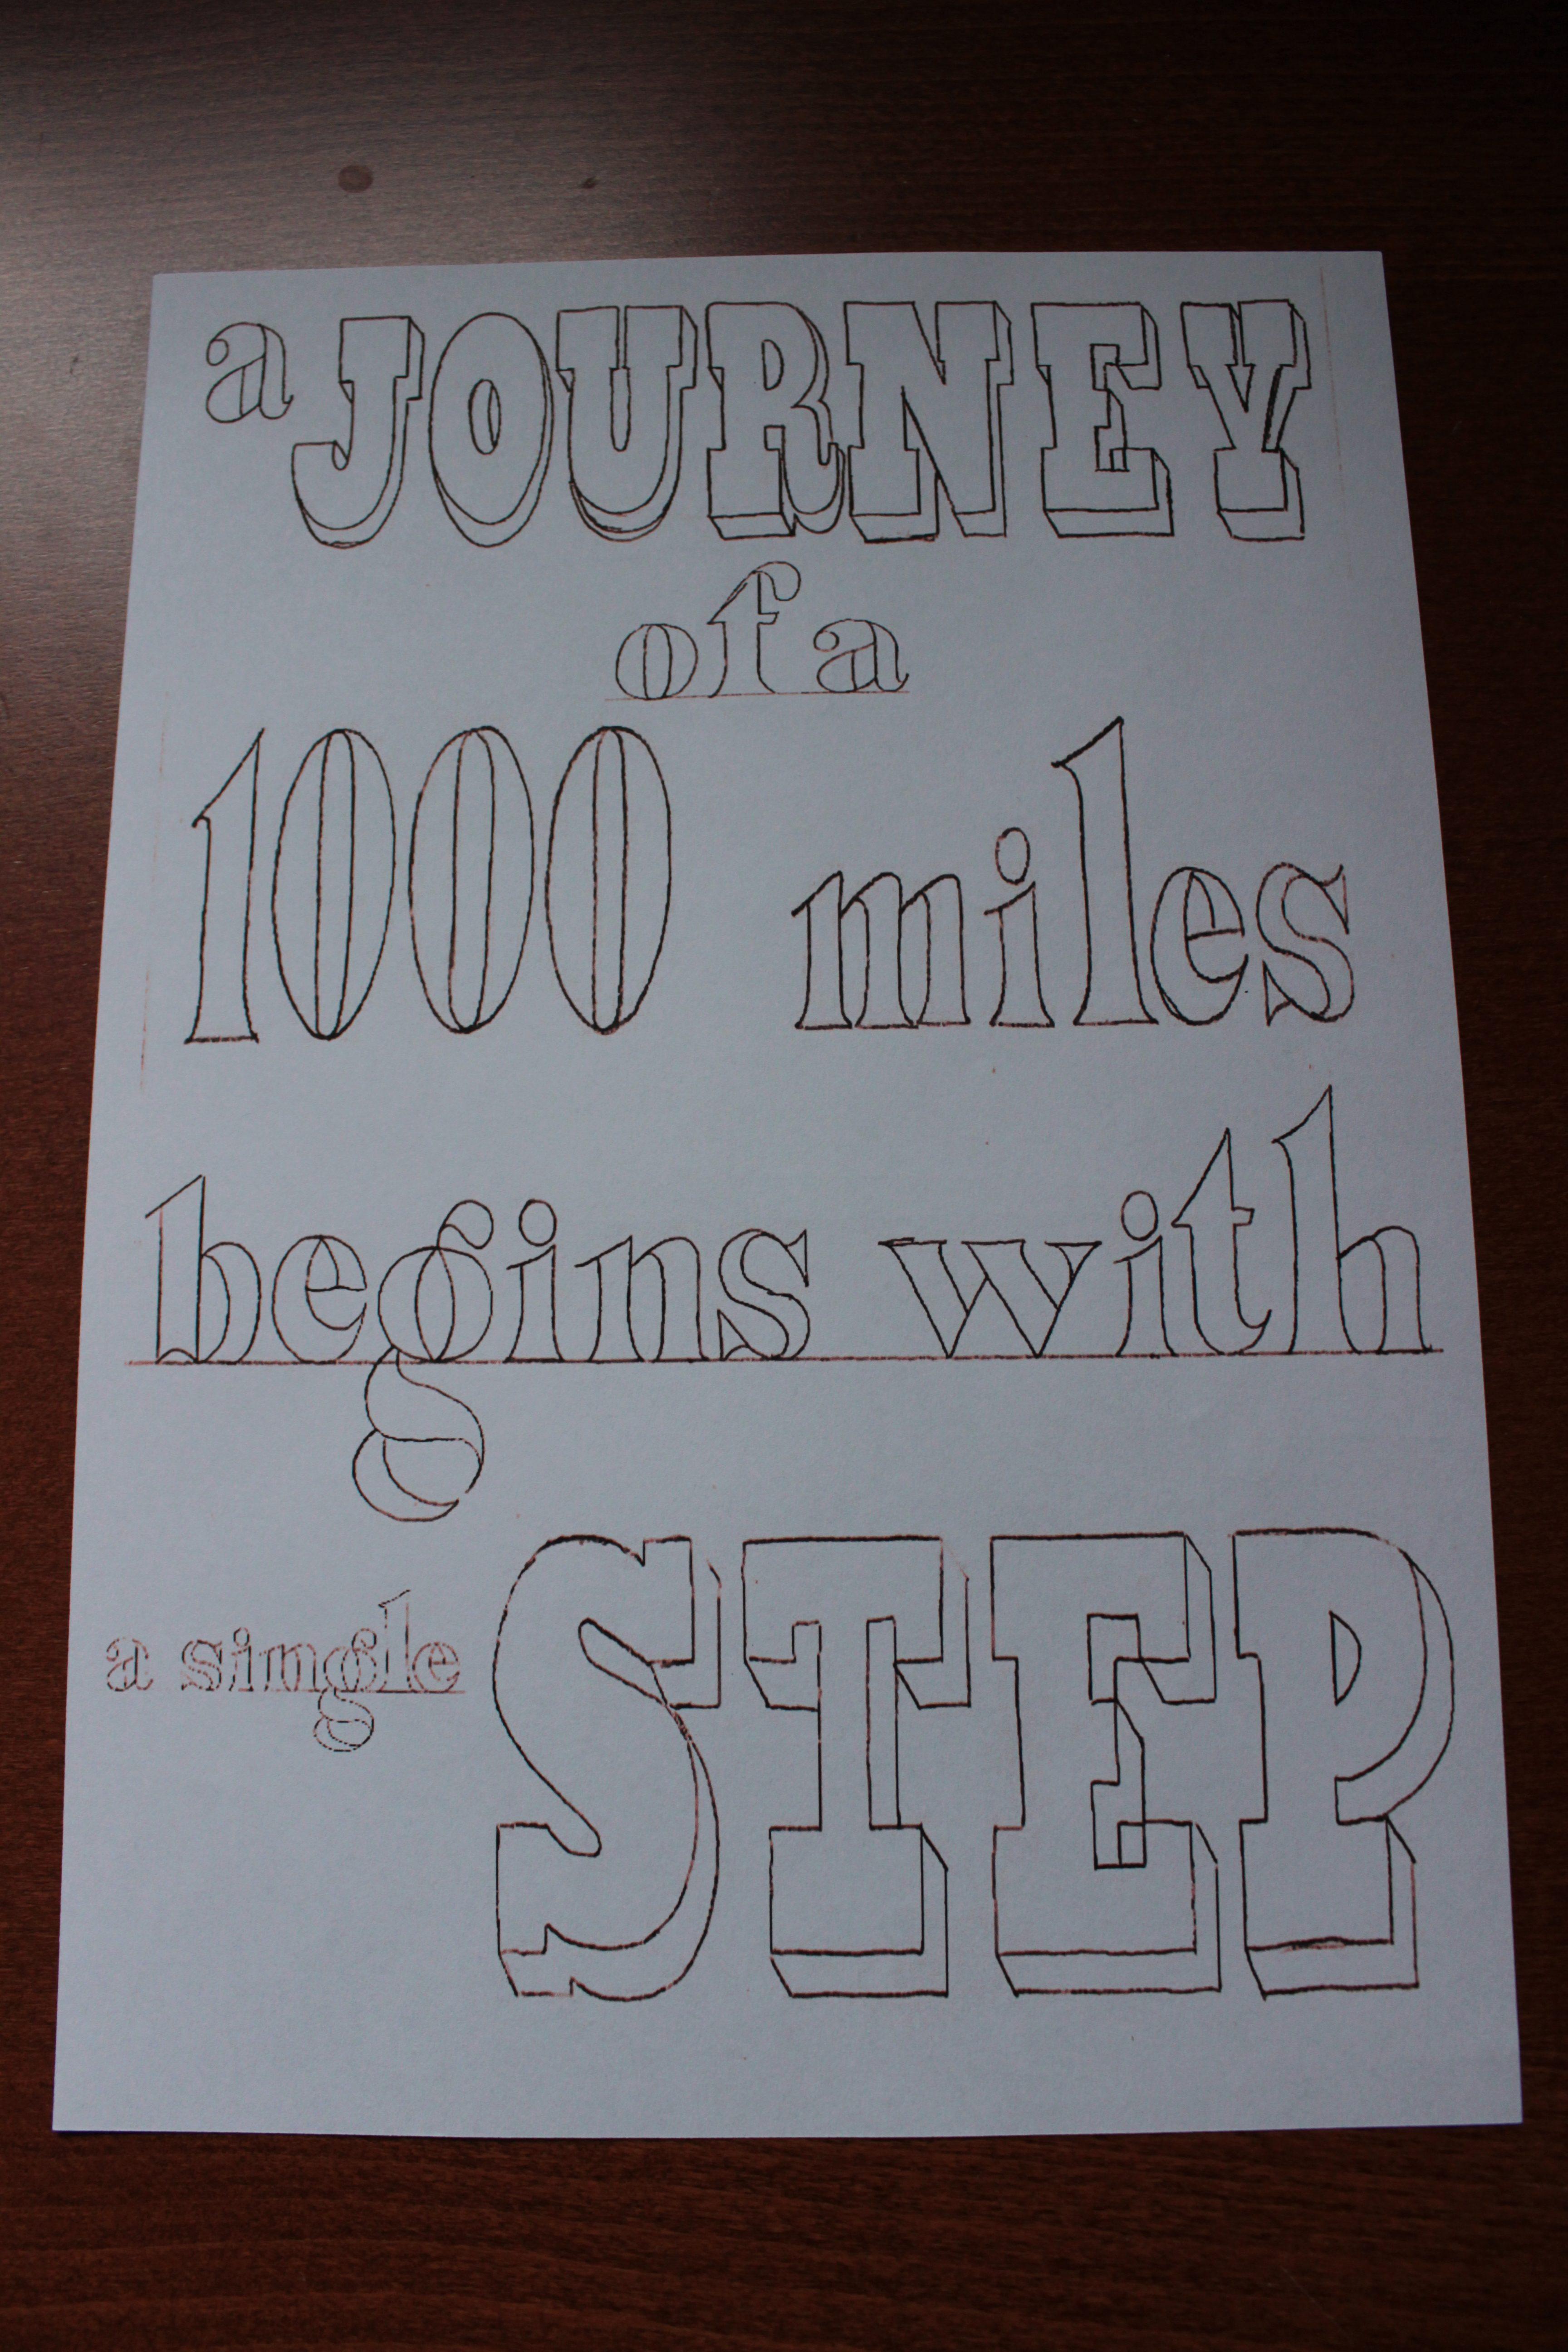 a JOURNEY
of a
1000 miles
begins with
a single STEP